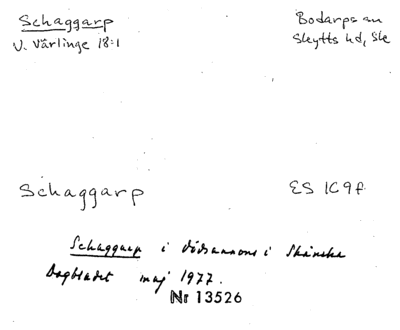 Schaggarp
Bodarps sn
V. Värlinge 18:1
Skytts hd, Ske
Schaggarp
ES 1C9f
Schaggarp i dödsannons i Skånska
Dagbladet maj 1977.
Nr 13526